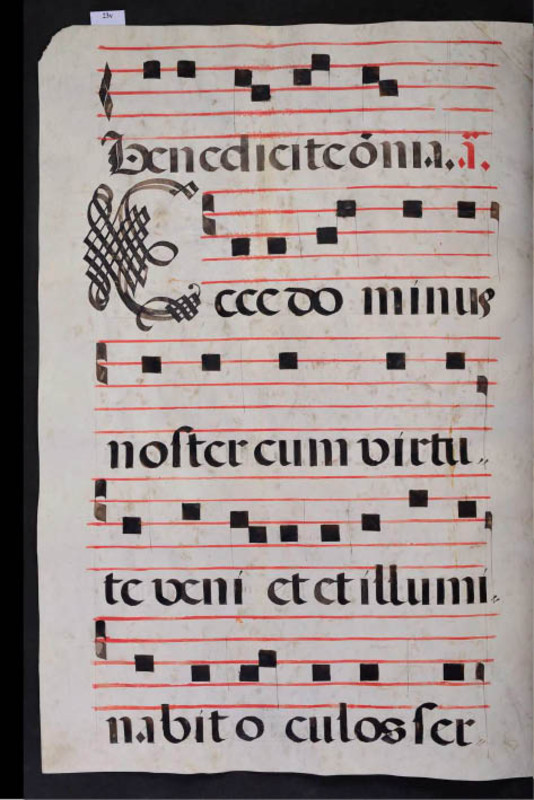 13v
Benedicite ōnia. ī.
Eccedominus
noster cum virtu
te veni et et illumi
nabit oculos ser